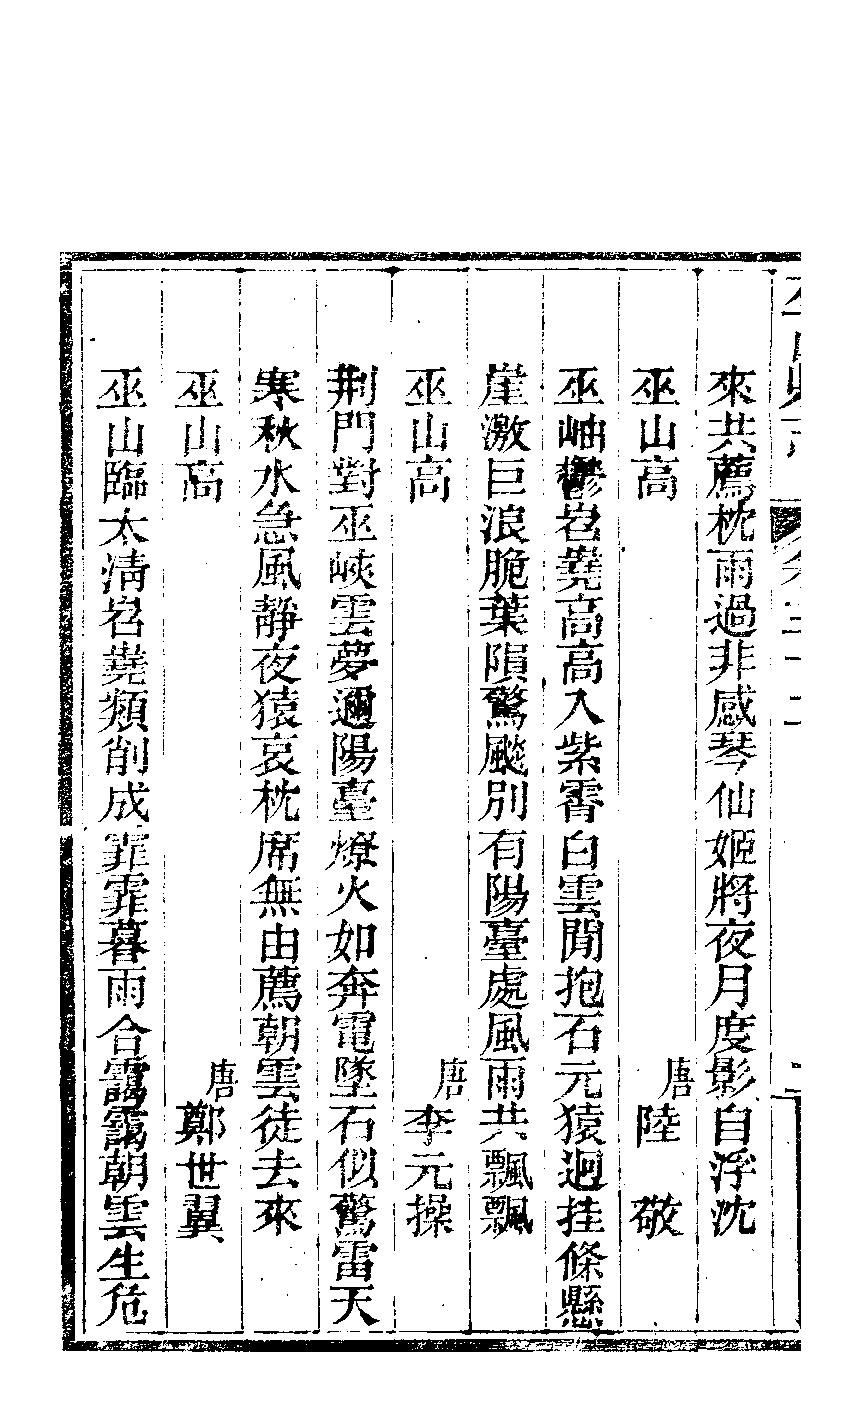 來共薦枕雨過非感琴仙姬將夜月度影自浮沈
巫山高
唐陸敬
巫岫鬱岧嶤高高入紫霄白雲閒抱石元猿迥挂條懸
崖激巨浪脆葉隕驚飇別有陽臺處風雨共飄飄
巫山高
唐李元操
荆門對巫峽雲夢邇陽臺燎火如奔電墜石似驚雷天
寒秋水急風靜夜猿哀枕席無由薦朝雲徒去來
巫山高
唐鄭世翼
巫山臨太清岧嶤類削成霏霏暮雨合靄靄朝雲生危